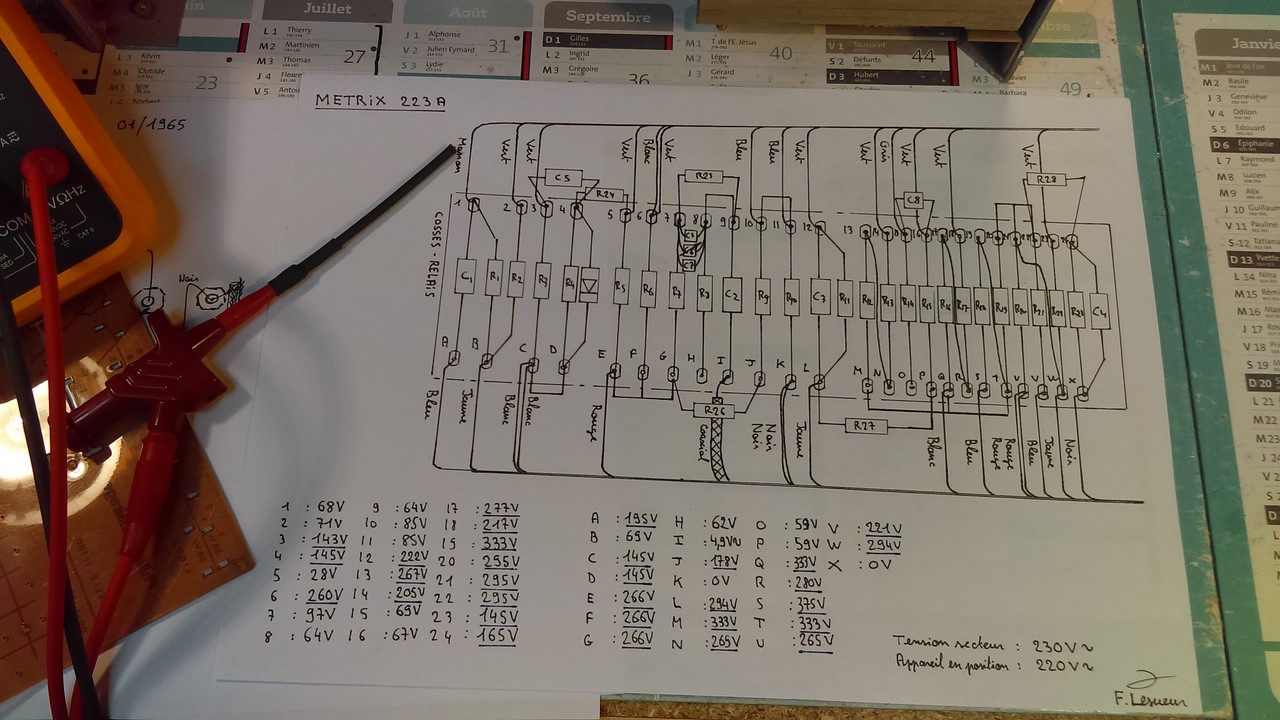 Juillet
Août
Septembre
L 3 Kévin
M 4 Clotilde
M 5 Igor
Norbert
23
L 1 Thierry
M 2 Martinien
M 3 Thomas
J 4
V 5
27
J 1 Alphonse
V 2 Julien Eymard
S 3 Lydie
31
D 1 Gilles
L 2 Ingrid
M 3 Grégoire
36
M 1 T. de l'E. Jésus
M 2 Léger
J 3 Gérard
40
V 1 Toussaint
S 2 Défunts
D 3 Hubert
44
Barbara
49
Janvie
M 1 Jour de l'an
M 2 Basile
J 3 Geneviève
V 4 Odilon
S 5 Edouard
D 6 Epiphanie
L 7 Raymond
M 8 Lucien
M 9 Alix
J 10 Guillaum
V 11 Pauline
S 12 Tatiana
D 13 Yvette
L 14 Nina
M 15 Rém
M 16 Mar
J 17 Ros
V 18 Pri
S 19
D 20
L 21
M 22
M 23
J 24
V 25
COM
VΩHz
CAT II
METRIX 223A
01/1965
Noir
Marron
Vert
Vert
Vert
Blanc
Vert
Bleu
Bleu
Vert
Vert
Gris
Vert
Vert
Vert
C5
R24
R25
C8
R28
1 2 3 4 5 6 7 8 9 10 11 12 13 14
COSSES - RELAIS
C1 R1 R2 R3 R4 R5 R6 R7 R8 C2 R9 R10 C3 R11 R12 R13 R14 R15 R16 R17 R18 R19 R20 R21 R22 R23 C4
A B C D E F G H I J K L M N O P Q R S T U V W X
R26
R27
Bleu
Jaune
Blanc
Blanc
Rouge
Coaxial
Noir
Noir
Jaune
Blanc
Bleu
Rouge
Rouge
Bleu
Jaune
Noir
1 : 68V 9 : 64V 17 : 277V
2 : 71V 10 : 85V 18 : 217V
3 : 143V 11 : 85V 19 : 333V
4 : 145V 12 : 222V 20 : 295V
5 : 28V 13 : 267V 21 : 295V
6 : 260V 14 : 205V 22 : 295V
7 : 97V 15 : 69V 23 : 145V
8 : 64V 16 : 67V 24 : 165V
A : 195V H : 62V O : 59V V : 221V
B : 69V I : 4,9V~ P : 59V W : 294V
C : 145V J : 178V Q : 333V X : 0V
D : 145V K : 0V R : 280V
E : 266V L : 294V S : 375V
F : 266V M : 333V T : 333V
G : 266V N : 269V U : 265V
Tension secteur : 230V~
Appareil en position : 220V~
F. Lesueur